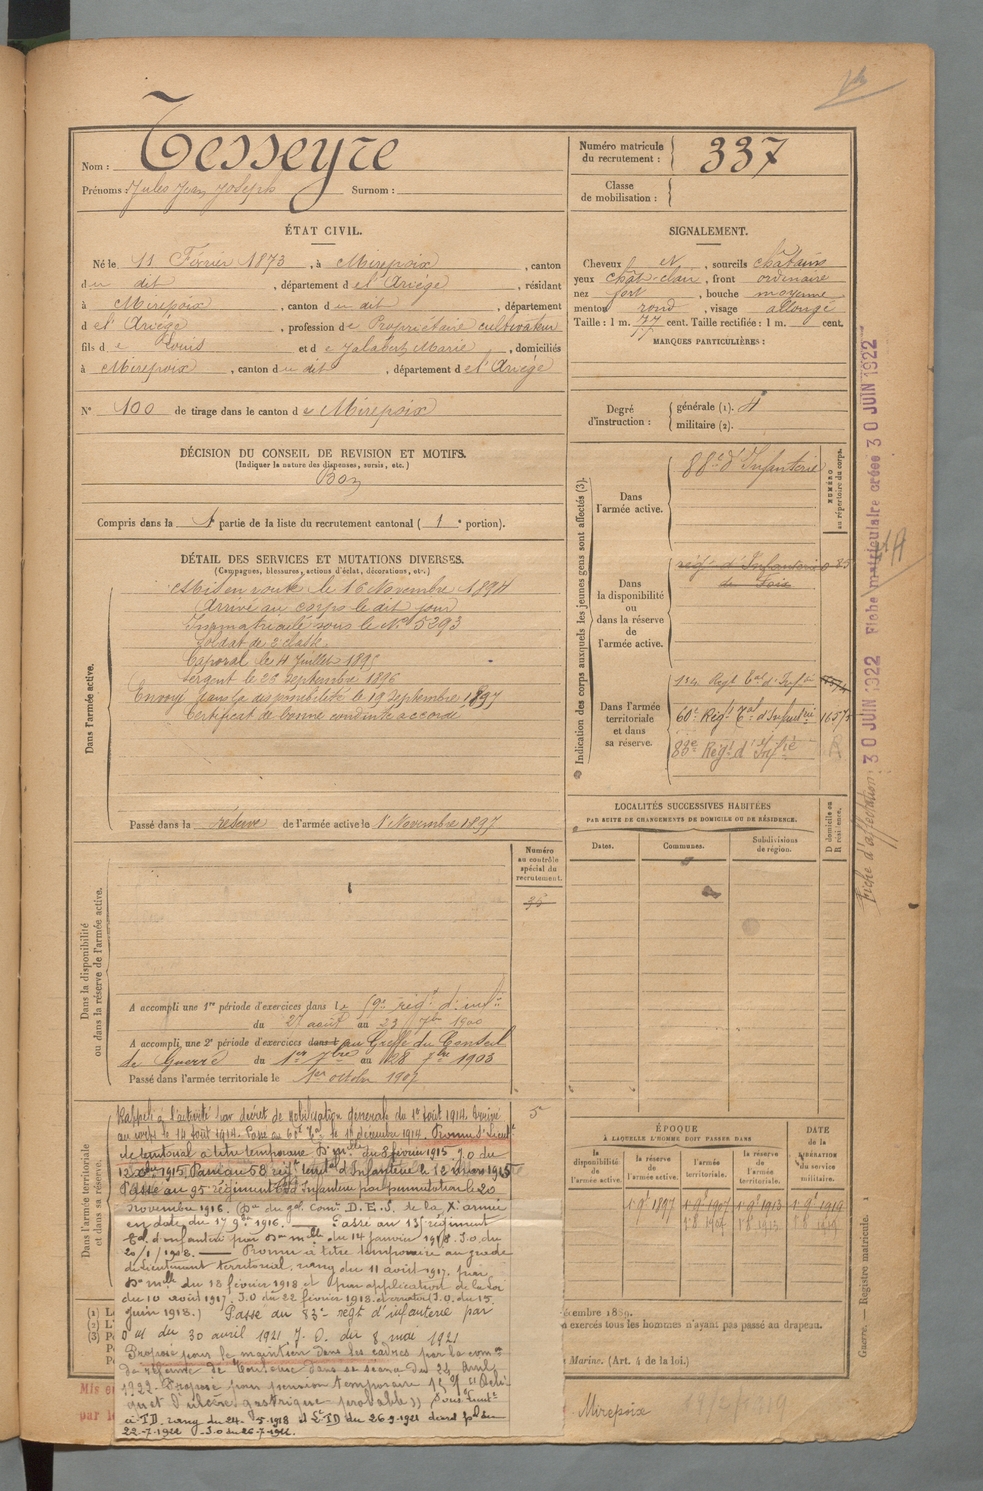 Nom : Tesseyre
Prénoms : Jules Jean Joseph Surnom :
Numéro matricule du recrutement : 337
Classe de mobilisation :
ÉTAT CIVIL.
Né le 11 Février 1873, à Mirepoix, canton
du dit, département de l'Ariége, résidant
à Mirepoix, canton du dit, département
de l'Ariége, profession de Propriétaire cultivateur
fils de Louis et de Jalabert Marie, domiciliés
à Mirepoix, canton du dit, département de l'Ariége
N° 100 de tirage dans le canton de Mirepoix
SIGNALEMENT.
Cheveux et N, sourcils châtains
yeux chât-clair, front ordinaire
nez fort, bouche moyenne
menton rond, visage allongé
Taille : 1 m. 77 cent. Taille rectifiée : 1 m. cent.
MARQUES PARTICULIÈRES :
Degré d'instruction : générale (1). 4
militaire (2).
DÉCISION DU CONSEIL DE REVISION ET MOTIFS.
(Indiquer la nature des dispenses, sursis, etc.)
Bon
Compris dans la 1 partie de la liste du recrutement cantonal (1 portion).
DÉTAIL DES SERVICES ET MUTATIONS DIVERSES.
(Campagnes, blessures, actions d'éclat, décorations, etc.)
Dans l'armée active.
Mis en route le 16 Novembre 1894
Arrivé au corps le dit jour
Immatriculé sous le N° 5393
Soldat de 2 classe
Caporal le 4 Juillet 1895
Sergent le 20 Septembre 1896
Envoyé dans la disponibilité le 19 Septembre 1897
Certificat de bonne conduite accordé
Passé dans la réserve de l'armée active le 1 Novembre 1897
Indication des corps auxquels les jeunes gens sont affectés (3).
NUMÉRO au répertoire du corps.
Dans l'armée active.
88e d'Infanterie
Dans la disponibilité ou dans la réserve de l'armée active.
régt d'Infanterie
de Foix
Dans l'armée territoriale et dans sa réserve.
134 Régt tal d'Inft
60e Régt Tal d'Infanterie 1657
83e Régt d'Infie
LOCALITÉS SUCCESSIVES HABITÉES
PAR SUITE DE CHANGEMENTS DE DOMICILE OU DE RÉSIDENCE.
Dates. Communes. Subdivisions de région. D domicile ou R résidence.
Numéro au contrôle spécial du recrutement.
Dans la disponibilité ou dans la réserve de l'armée active.
A accompli une 1re période d'exercices dans le régt d'infie
du 27 août au 23 7bre 1900
A accompli une 2e période d'exercices dans l au Greffe du Conseil
de Guerre du 1er 7bre au 28 7bre 1903
Passé dans l'armée territoriale le 1er octobre 1907
Dans l'armée territoriale et dans sa réserve.
Rappelé à l'activité par décret de Mobilisation générale du 1er août 1914. Arrivé
au corps le 14 août 1914. Passé au 60e Tal le 1er décembre 1914. Promu S/Lieutt
de territorial à titre temporaire Don mlle du 3 février 1915 J.O du
1915. Passé au 58 régt territal d'Infanterie le 12 mars 1915
Passé au 95 régiment Tal d'Infanterie par permutation le 20
novembre 1916. (On du gal Comt D.E.S. de la X armée
en date du 17 9bre 1916. Passé au 135 régiment
tal d'infanterie par Don mlle du 14 janvier 1918 J.O. du
20/1/1918. Promu à titre temporaire au grade
de lieutenant territorial, rang du 11 août 1917, par
Don mlle du 13 février 1918 et par application de la loi
du 10 août 1917 J.O du 22 février 1918. et erratum J.O. du 15
juin 1918.) Passé au 83e régt d'infanterie par
du 30 avril 1921 J.O. du 8 mai 1921
Proposé pour le maintien dans les cadres par la comon
de réforme de Toulouse dans sa séance du 24 Avril
1922. Proposé pour pension temporaire 15 %
ulcère gastrique probable)) Sous Lieutt
à T.D. rang du 24-5-1918 et Lt TD du 26-9-1921 décret pl du
22-7-1922 J.O du 26-7-1922.
5
ÉPOQUE
À LAQUELLE L'HOMME DOIT PASSER DANS
la disponibilité de l'armée active. la réserve de l'armée active. l'armée territoriale. la réserve de l'armée territoriale.
DATE de la LIBÉRATION du service militaire.
1 9e 1897 1 9e 1907 1 9e 1913 1 9e 1919
1 8 1907 1 8 1913 1 8 1919
écembre 1889.
exercés tous les hommes n'ayant pas passé au drapeau.
Marine. (Art. 4 de la loi.)
Mirepoix
Guerre. — Registre matricule. 1
Fiche d'affectation 30 JUIN 1922 Fiche matriculaire créée 30 JUIN 1922